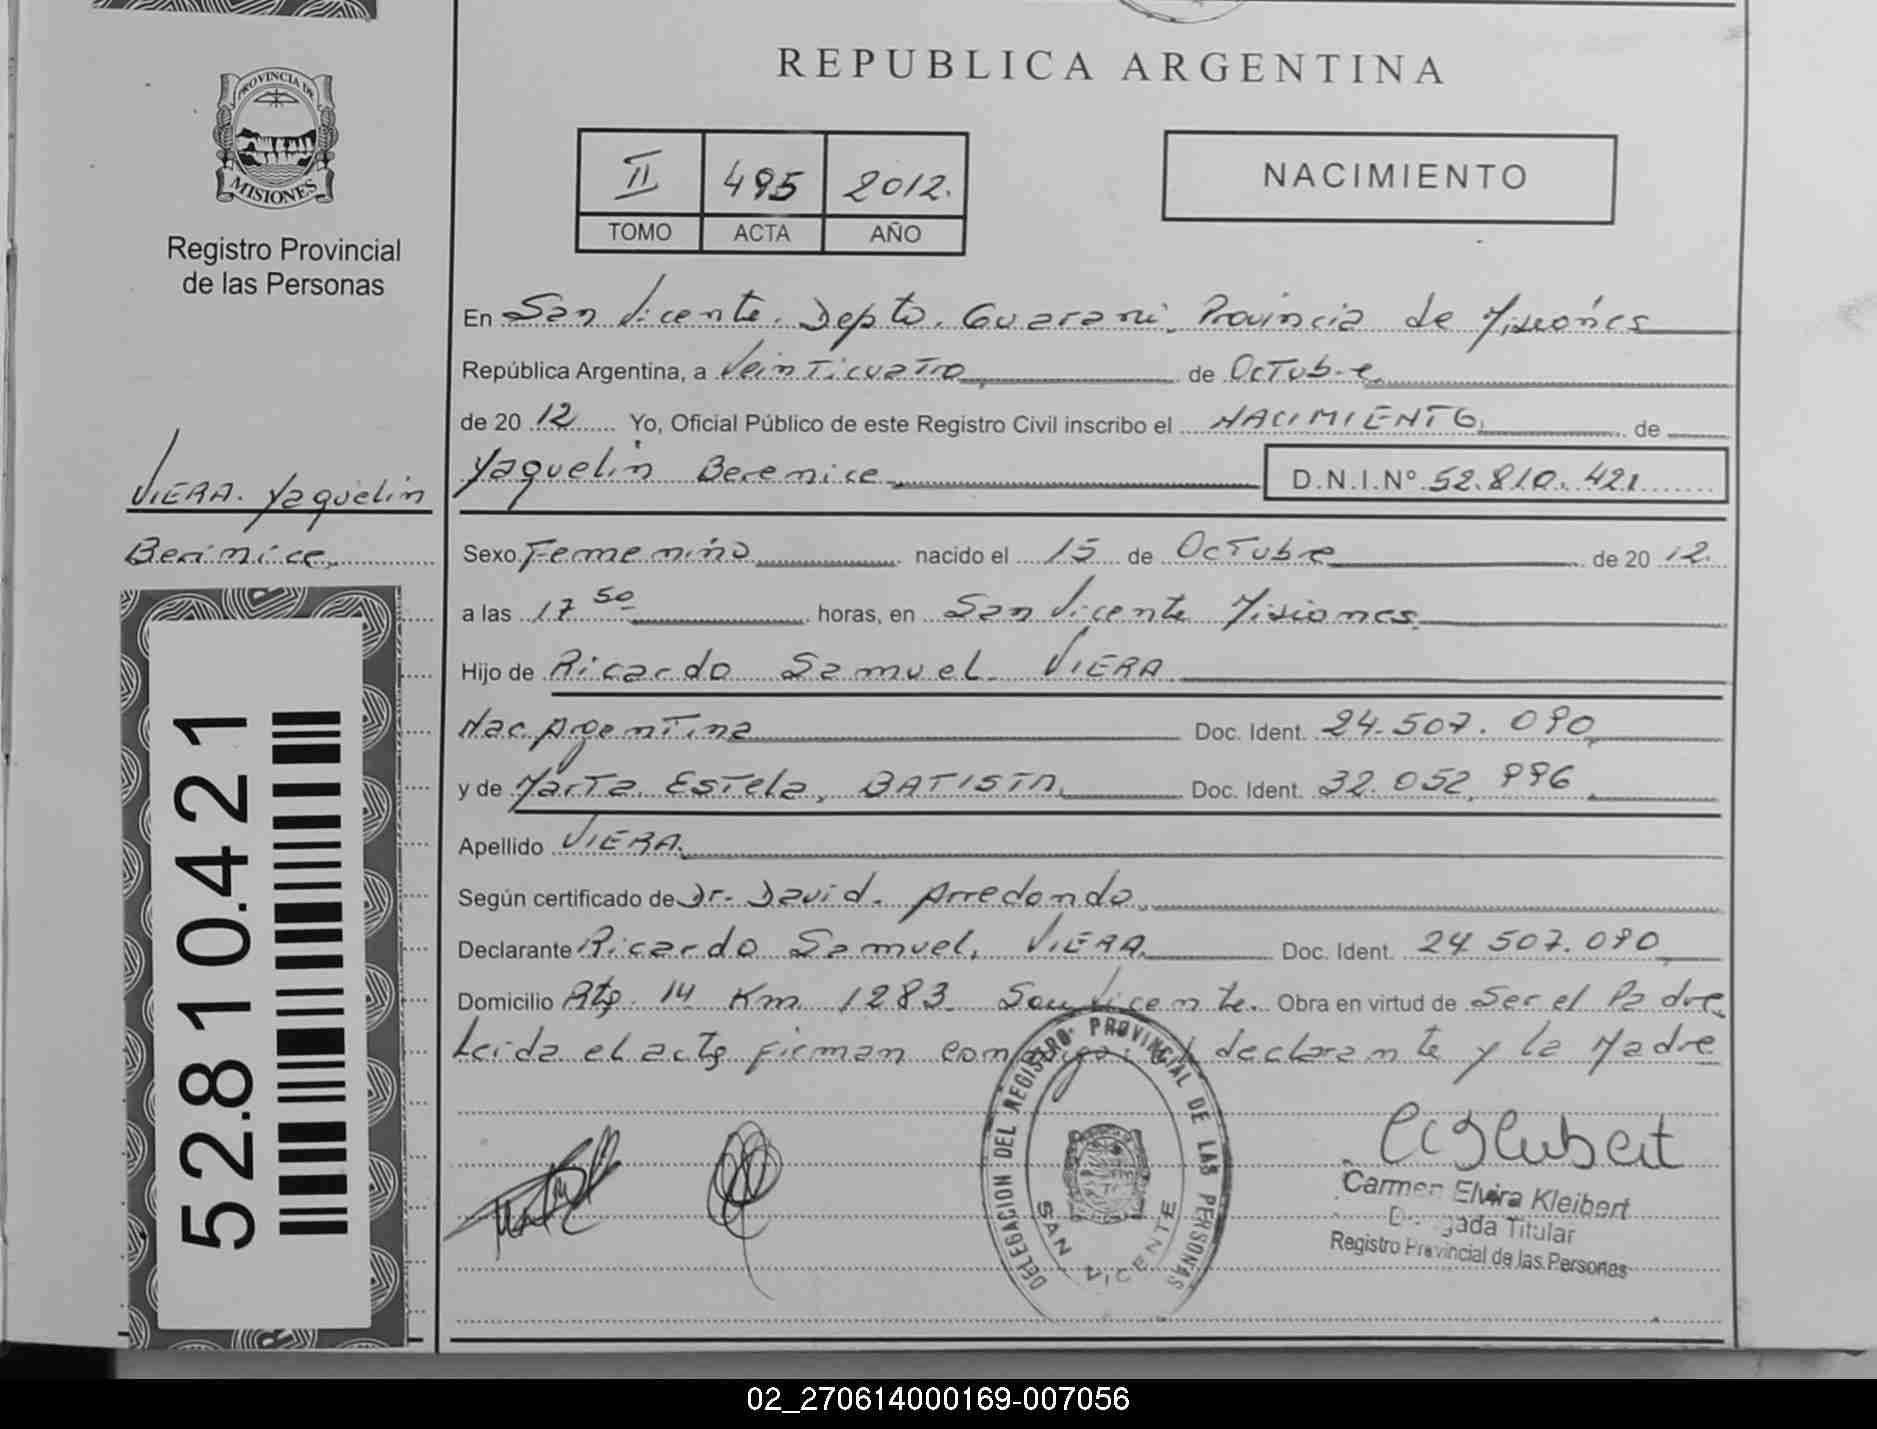 REPUBLICA ARGENTINA
PROVINCIA DE
MISIONES
Registro Provincial
de las Personas
II 495 2012.
TOMO ACTA AÑO
NACIMIENTO
En San Vicente. Depto. Guarani. Provincia de Misiones
República Argentina, a Veinticuatro de Octubre
de 20 12 Yo, Oficial Público de este Registro Civil inscribo el NACIMIENTO de
Yaquelin Berenice D.N.I.Nº 52.810.421
VIERA. Yaquelin
Berinice
Sexo Femenino nacido el 15 de Octubre de 20 12.
a las 17 50 horas, en San Vicente Misiones
Hijo de Ricardo Samuel VIERA
Nac. Argentina Doc. Ident. 24.507.090
y de Marta Estela, BATISTA Doc. Ident. 32.052.996
Apellido VIERA.
Según certificado de Dr. David. Arredondo
Declarante Ricardo Samuel, VIERA Doc. Ident. 24 507.090
Domicilio Rta. 14 Km 1283 San Vicente. Obra en virtud de Ser el Padre
Leida el acta firman conmigo: el declarante y la Madre
52.810.421
DELEGACION DEL REGISTRO PROVINCIAL DE LAS PERSONAS
SAN VICENTE
Carmen Elvira Kleibert
Delegada Titular
Registro Provincial de las Personas
02_270614000169-007056